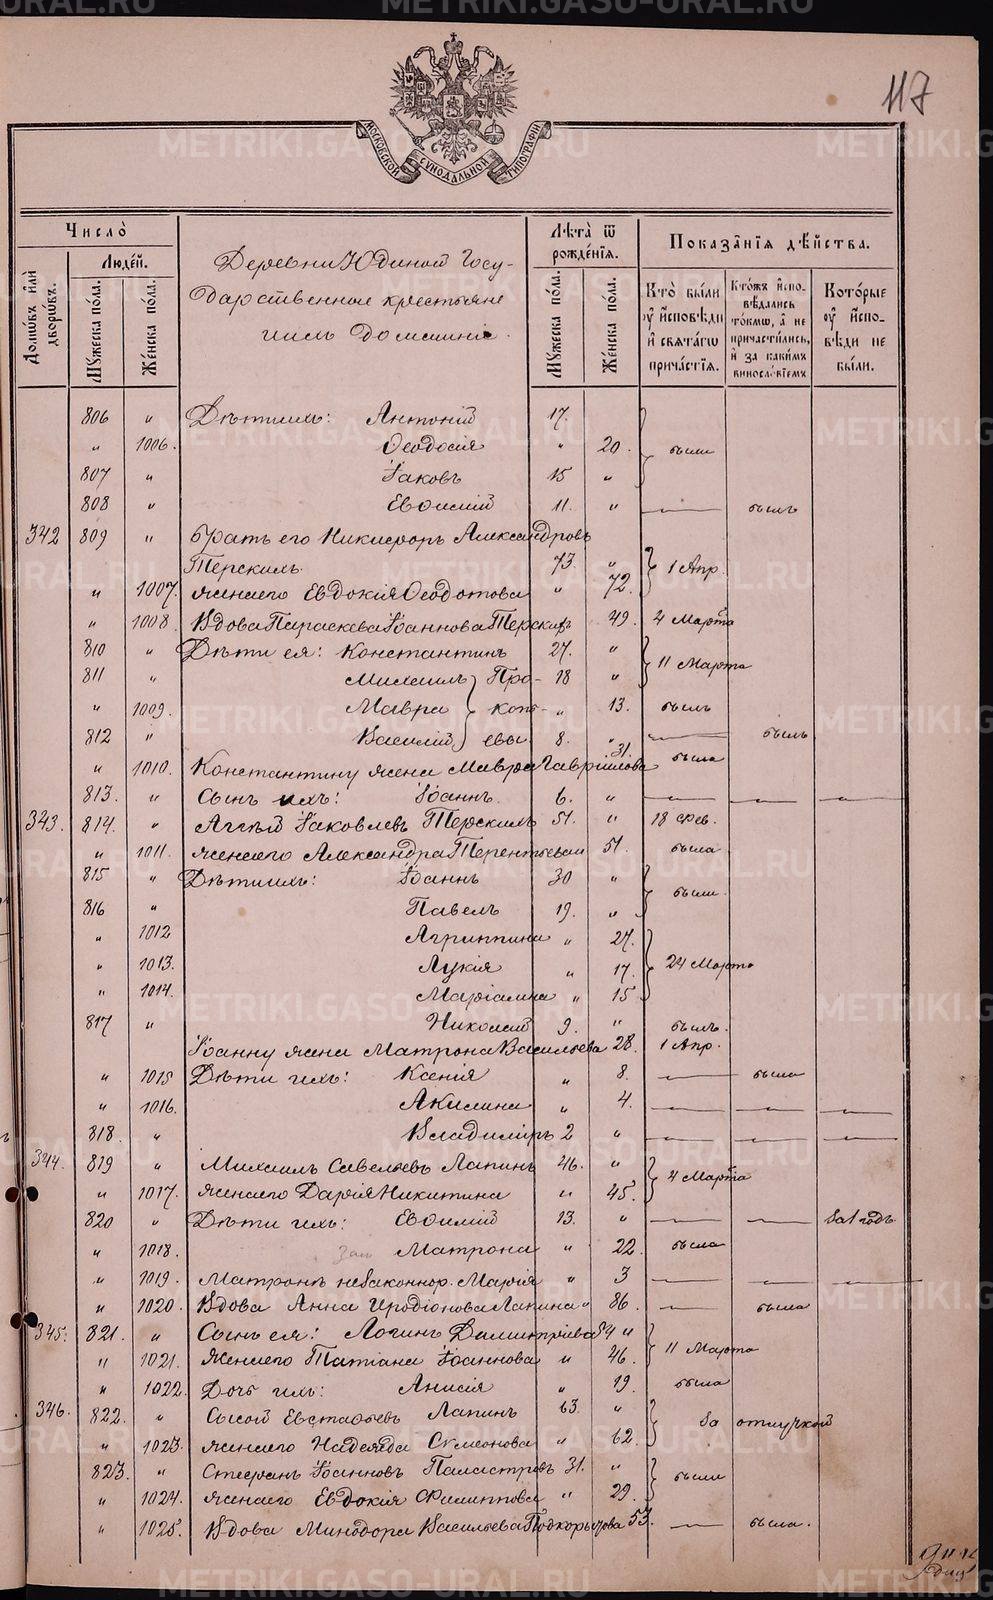 117
МОСКОВСКОЙ СѴНОДАЛЬНОЙ ТИПОГРАФІИ
Число̀
Людє́й.
Домѡ́въ и҆лѝ дворѡ́въ.
Мꙋ́жеска по́ла.
Же́нска по́ла.
Деревни Юдиной Госу-
дарственные крестьяне
ихъ домашніе.
Лѣ́та ѿ рожде́нїѧ.
Мꙋ́жеска по́ла.
Же́нска по́ла.
Показа̑нїѧ дѣ́йства.
Кто̀ бы́ли оу҆ и҆́сповѣди и҆ свѧта́гѡ прича́стїѧ.
Кто́жъ и҆спо-вѣ́дались то́кмѡ, а҆ не причасти́лись, и҆ за каки́мъ виносло́вїемъ
Кото́рые оу҆ и҆́спо-вѣди не бы́ли.
806 " Дѣти ихъ: Антоній 17.
" 1006. Ѳеодосія " 20. были
807 " Іаковъ 15 "
808 " Евѳимій 11. " — былъ
342 809 " Братъ его Никифоръ Александровъ
Терскихъ 73. " 1 Апр.
" 1007. Жена его Евдокія Ѳеодотова " 72.
" 1008. Вдова Параскева Іоаннова Терскихъ 49. 4 Марта
810 " Дѣти ея: Константинъ 27. "
811 " Михаилъ Про- 18 " 11 Марта
" 1009. Мавра копь- " 13. былъ
812 " Василій евы. 8. " — былъ
" 1010. Константину жена Мавра Гавріилова 31. была
813. " Сынъ ихъ: Іоаннъ. 6. " — — —
343. 814. " Аггѣй Іаковлевъ Терскихъ 51. " 18 Фев.
" 1011. Жена его Александра Терентьева 51. была
815 " Дѣти ихъ: Іоаннъ 30 "
816 " Павелъ 19. " были.
" 1012 Агриппина " 27.
" 1013. Лукія " 17. 24 Марта
" 1014. Маріамна " 15
817 " Николай 9. " былъ.
Іоанну жена Матрона Васильева 28. 1 Апр.
" 1015 Дѣти ихъ: Ксенія " 8. — была
" 1016. Акилина " 4. — — —
818. " Владиміръ 2 " — — —
344. 819 " Михаилъ Савельевъ Лапинъ 46. " 4 Марта
" 1017. Жена его Дарія Никитина " 45.
820 " Дѣти ихъ: Евѳимій 13. " — — за 1 годъ
" 1018. Матрона " 22. была
" 1019. Матроны незаконнор. Марія " 3 — — —
" 1020. Вдова Анна Иродіонова Лапина " 86. — была
345: 821. " Сынъ ея: Логинъ Димитріевъ 54 "
" 1021. Жена его Татіана Іоаннова " 46. 11 Марта
" 1022. Дочь ихъ: Анисія " 19. была
346. 822. " Сысой Евстафьевъ Лапинъ 63. " за отлучкой
" 1023. Жена его Надежда Симеонова " 62.
823. " Стефанъ Іоанновъ 31. " были
" 1024. Жена его Евдокія Филиппова " 29.
" 1025. Вдова Минодора Васильева 53. — была.
METRIKI.GASO-URAL.RU